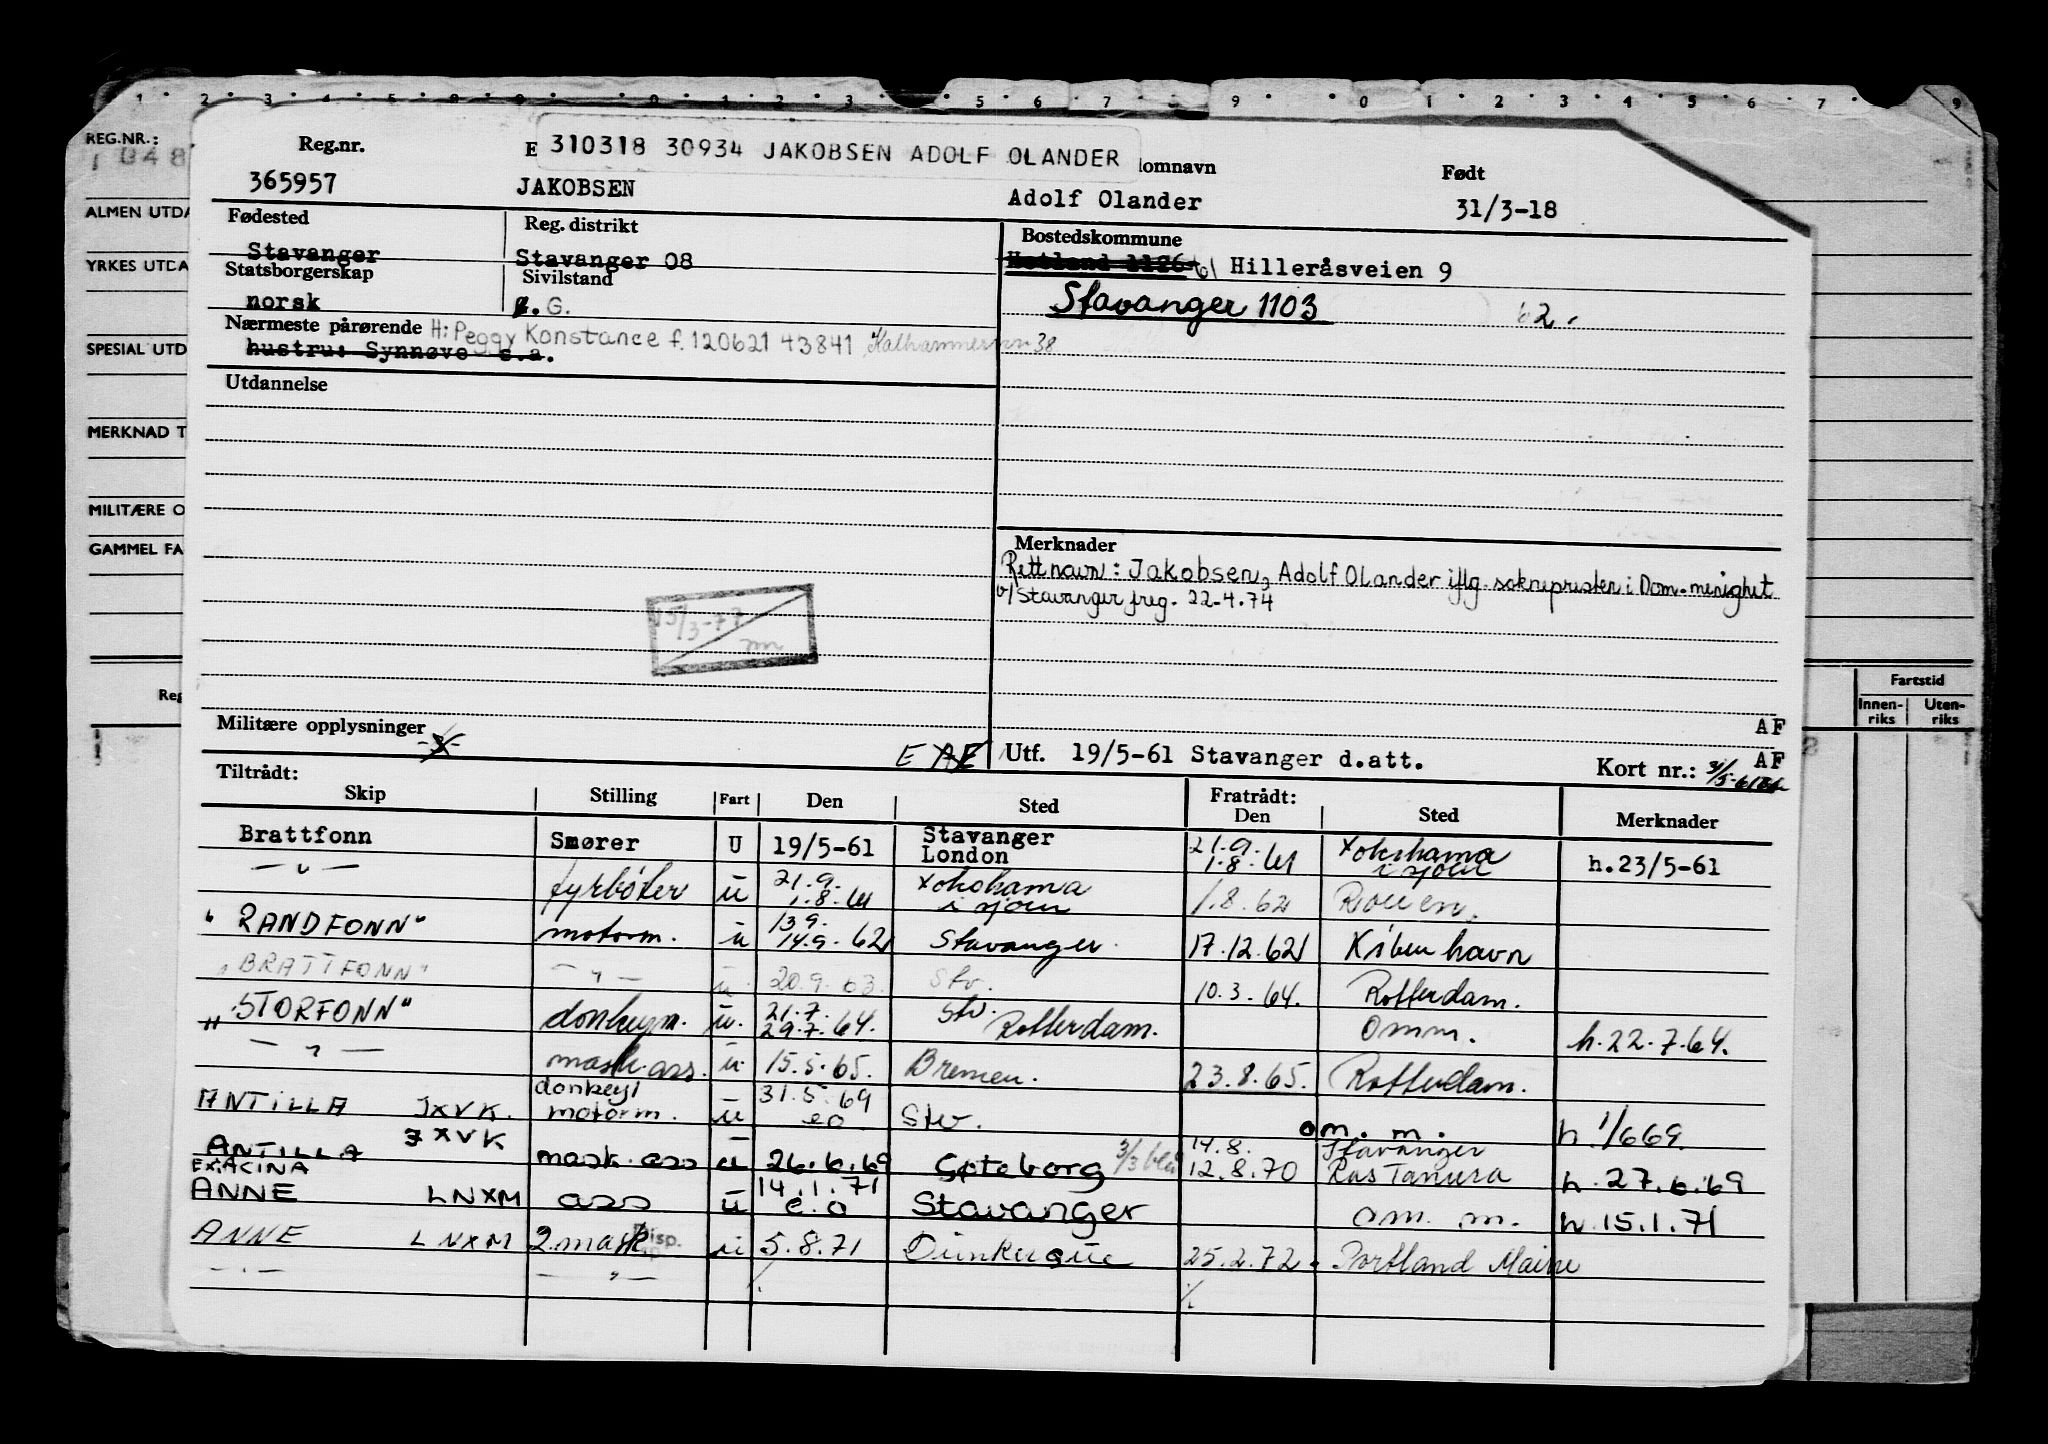 1 2 3 4 5 6 7 8 9 0 1 2 3 5 6 7 8 9 0 1 2 3 4 5 6 7 9
REG.NR.:
ALMEN UTDA
YRKES UTDA
SPESIAL UTD
MERKNAD T
MILITÆRE O
GAMMEL FA
Reg
Fartstid
Innen-riks Uten-riks
310318 30934 JAKOBSEN ADOLF OLANDER
Reg.nr. E omnavn Født
365957 JAKOBSEN Adolf Olander 31/3-18
Fødested Reg. distrikt Bostedskommune
Stavanger Stavanger 08 Hetland 1126 61 Hilleråsveien 9
Statsborgerskap Sivilstand
norsk G. Stavanger 1103 62.
Nærmeste pårørende H: Peggy Konstance f. 120621 43841 Kalhammerveien 38
hustru: Synnøve s.a.
Utdannelse
Merknader
Rett navn: Jakobsen, Adolf Olander iflg. soknepresten i Dom. menighet
v/ Stavanger freg. 22-4.74
15/3-77
m
AF
Militære opplysninger
E AF Utf. 19/5-61 Stavanger d.att. Kort nr.: AF
Tiltrådt: Fratrådt:
Skip Stilling Fart Den Sted Den Sted Merknader
Brattfonn Smører U 19/5-61 Stavanger London 21.9. 1.8.61 Yokohama i sjøen h.23/5-61
— " — fyrbøter u 21.9. 1.8.61 Yokohama i sjøen 1.8.62 Rouen.
"RANDFONN" motorm. u 13.9. 14.9.62 Stavanger. 17.12.62 København
"BRATTFONN" — " — u. 20.9.63. Stv. 10.3.64. Rotterdam.
"STORFONN" donkeym. u. 21.7. 29.7.64. Stv. Rotterdam. omm. h.22.7.64.
— " — mask.ass. u. 15.5.65. Bremen. 23.8.65. Rotterdam.
ANTILLA JXVK. donkey/ motorm. u 31.5.69 eo Stv. om.m. h 1/6 69.
ANTILLA JXVK mask.ass u 26.6.69 Gøteborg 14.8. 12.8.70 Stavanger Ras Tanura h.27.6.69
EX: ACINA
ANNE LNXM ass u 14.1.71 e.o Stavanger om.m. h.15.1.71
ANNE LNXM 2.mask Disp. u 5.8.71 Dunkerque 25.2.72. Portland Maine
— " — — " — % %